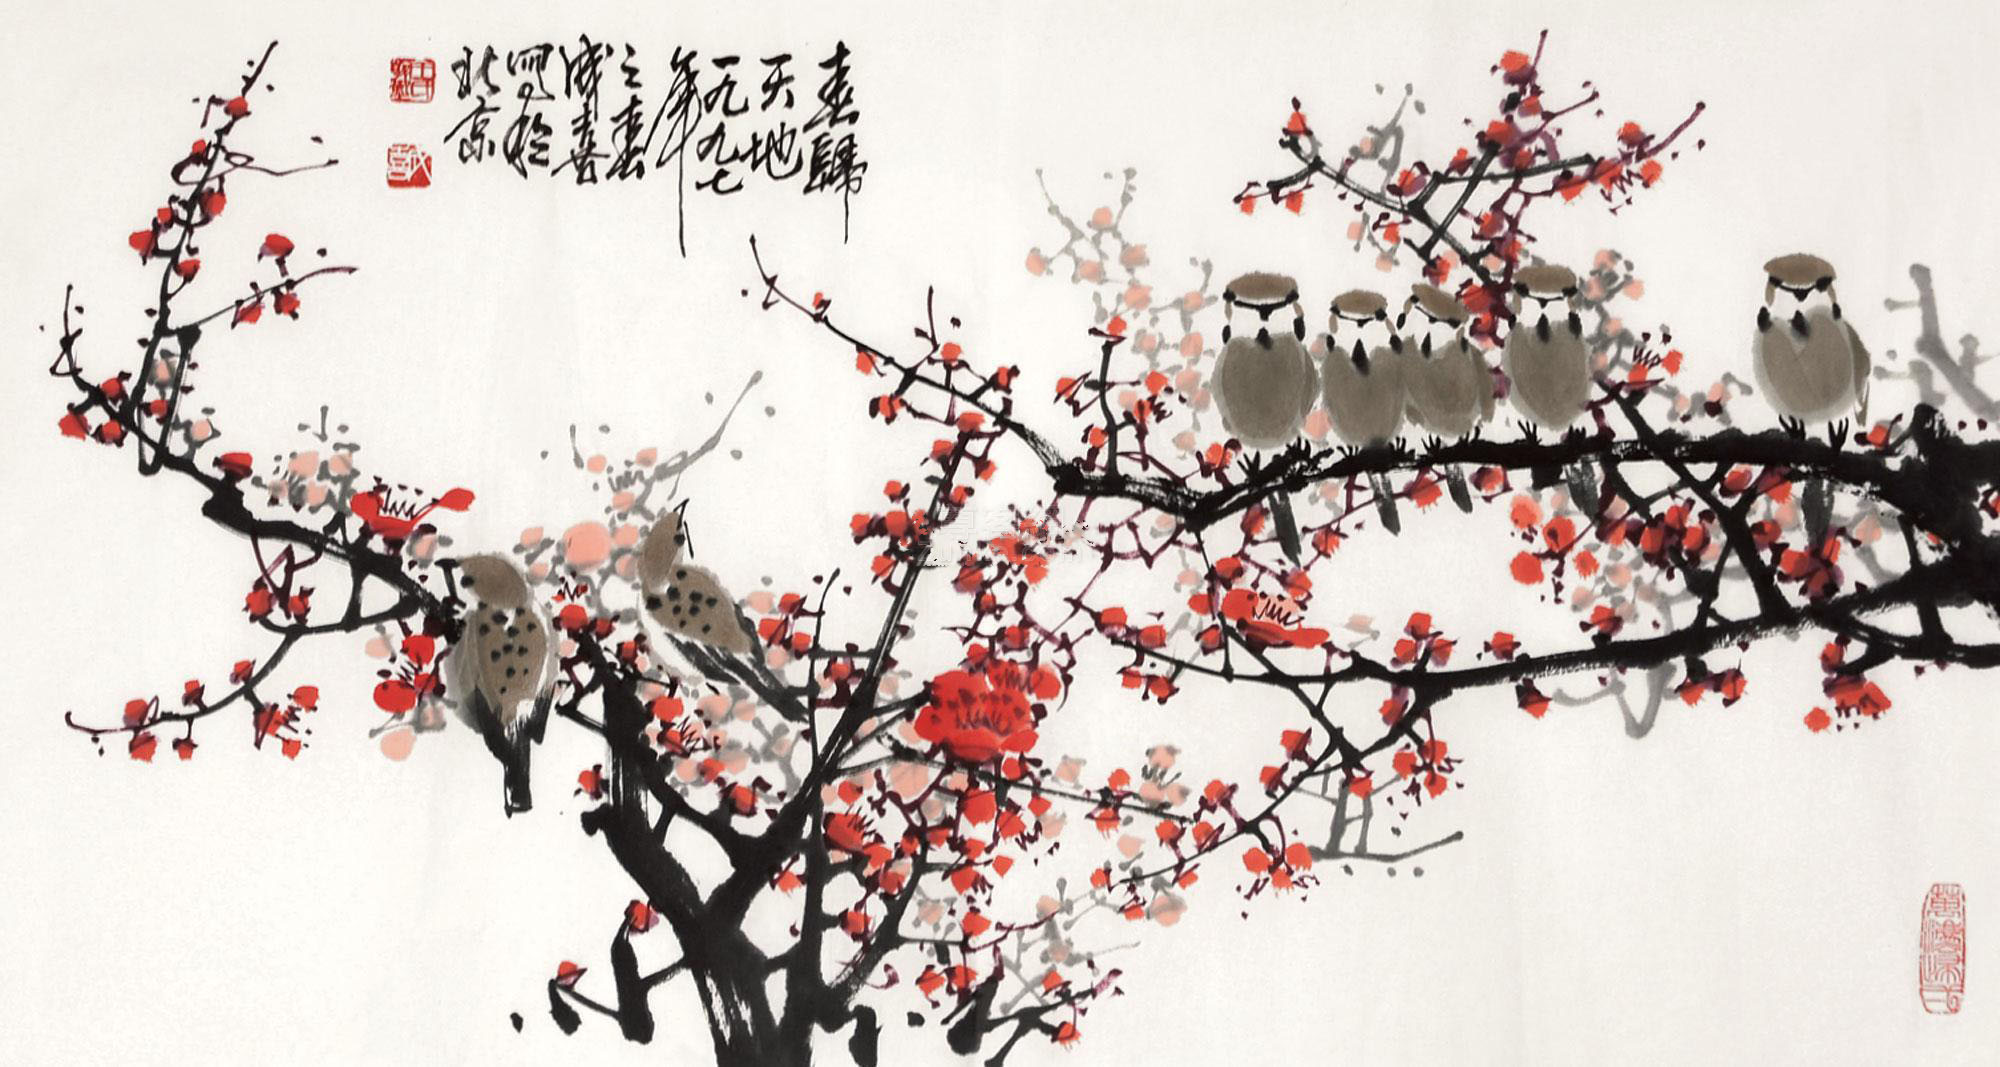 春歸
天地
一九九七
年
之春
成喜
寫於
北京